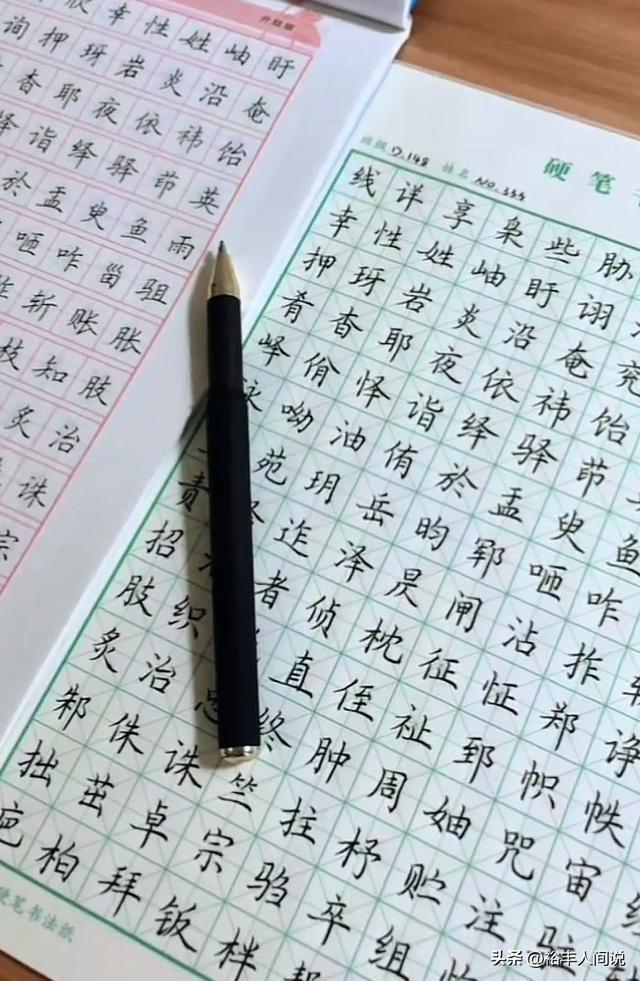 升级版
欣 幸 性 姓 岫 盱
询 押 玡 岩 炎 沿 奄
杳 耶 夜 依 祎 饴
怿 诣 绎 驿 茚 英
於 盂 臾 鱼 雨
咂 咋 甾 驵
斩 账 胀
枝 知 肢
炙 治
诛
宗
硬 笔
班级 D.148 姓名 NO.333
线 详 享 枭 些 胁
幸 性 姓 岫 盱 诩
押 玡 岩 炎 沿 奄 兖
肴 杳 耶 夜 依 祎 饴
峄 佾 怿 诣 绎 驿 茚
泳 呦 油 侑 於 盂 臾 鱼
苑 玥 岳 昀 郓 咂 咋
责 迮 泽 昃 闸 沾 拃 斩
招 者 侦 枕 征 怔 郑 诤
肢 织 直 侄 祉 郅 帜 帙
炙 治 终 肿 周 妯 咒 宙
邾 侏 诛 竺 拄 杼 贮 注 驻
拙 茁 卓 宗 驺 卒 组
疤 柏 拜 钣 柈
硬笔书法纸
头条 @裕丰人间说